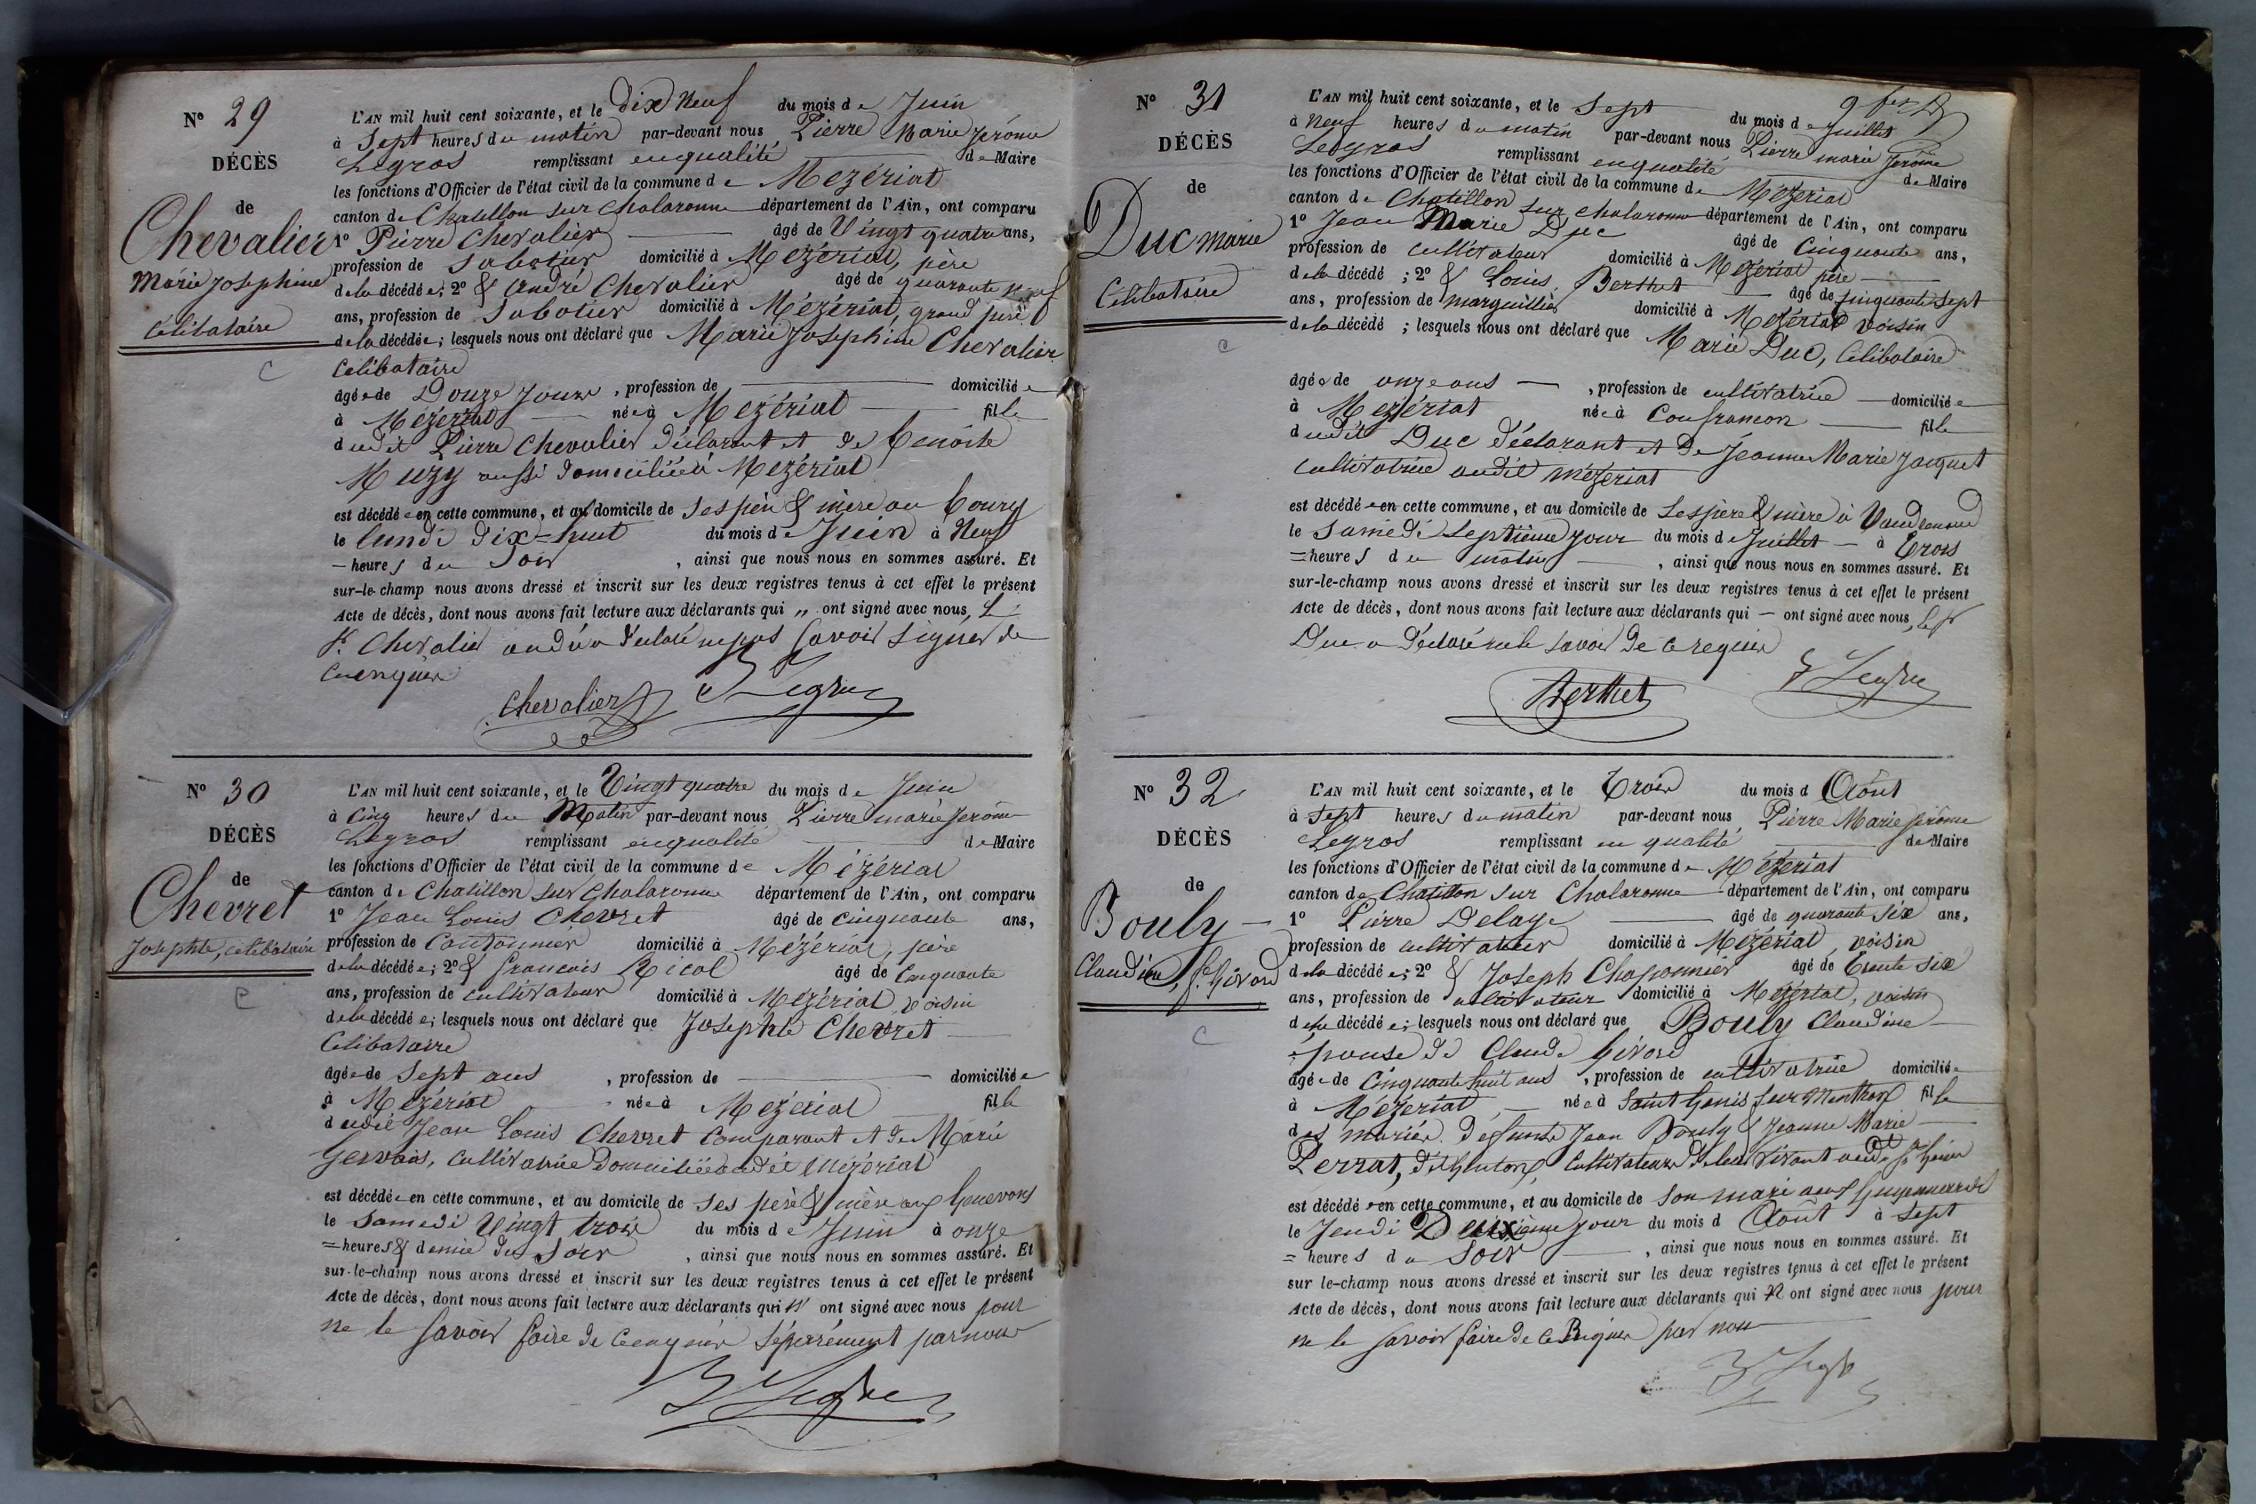 N° 29
DÉCÈS
de
Chevalier
Marie Josephine
Célibataire
L'AN mil huit cent soixante, et le Dix Neuf du mois de Juin
à Sept heures du matin par-devant nous Pierre Marie Jérôme
Legros remplissant en qualité de Maire
les fonctions d'Officier de l'état civil de la commune de Mézériat
canton de Chatillon sur Chalaronne département de l'Ain, ont comparu
1° Pierre Chevalier âgé de Vingt quatre ans,
profession de Sabotier domicilié à Mézériat, père
de la décédée; 2° & André Chevalier âgé de quarante neuf
ans, profession de Sabotier domicilié à Mézériat, grand père
de la décédée; lesquels nous ont déclaré que Marie Josephine Chevalier
Célibataire
âgée de Douze Jours, profession de domiciliée
à Mézériat née à Mézériat fille
dudit Pierre Chevalier déclarant et de Benoite
Muzy aussi domiciliée à Mézériat
est décédée en cette commune, et au domicile de ses père & mère au bourg
le lundi dix-huit du mois de Juin à Neuf
heures du Soir, ainsi que nous nous en sommes assuré. Et
sur-le-champ nous avons dressé et inscrit sur les deux registres tenus à cet effet le présent
Acte de décès, dont nous avons fait lecture aux déclarants qui „ ont signé avec nous,
Chevalier a déclaré ne pas savoir signer de
ce enquis
Chevalier Legros
N° 30
DÉCÈS
de
Chevret
Josephte, célibataire
L'AN mil huit cent soixante, et le Vingt quatre du mois de Juin
à Cinq heures du Matin par-devant nous Pierre marie Jérôme
Legros remplissant en qualité de Maire
les fonctions d'Officier de l'état civil de la commune de Mézériat
canton de Chatillon sur Chalaronne département de l'Ain, ont comparu
1° Jean Louis Chevret âgé de cinquante ans,
profession de Cantonnier domicilié à Mézériat, père
de la décédée; 2° & francois Ricol âgé de Cinquante
ans, profession de cultivateur domicilié à Mézériat voisin
de la décédée; lesquels nous ont déclaré que Josephte Chevret
Célibataire
âgée de Sept ans, profession de domiciliée
à Mézériat née à Mézériat fille
dudit Jean Louis Chevret comparant et de Marie
Gervais, cultivatrice domiciliée audit Mézériat
est décédée en cette commune, et au domicile de ses père & mère aux
le Samedi Vingt trois du mois de Juin à onze
heures & demie du Soir, ainsi que nous nous en sommes assuré. Et
sur-le-champ nous avons dressé et inscrit sur les deux registres tenus à cet effet le présent
Acte de décès, dont nous avons fait lecture aux déclarants qui n' ont signé avec nous pour
ne le savoir faire de ce enquis séparément par nous
Legros
N° 31
DÉCÈS
de
Duc Marie
Célibataire
L'AN mil huit cent soixante, et le Sept du mois de Juillet
à Neuf heures du matin par-devant nous Pierre marie Jérôme
Legros remplissant en qualité de Maire
les fonctions d'Officier de l'état civil de la commune de Mézériat
canton de Chatillon sur Chalaronne département de l'Ain, ont comparu
1° Jean Marie Duc âgé de Cinquante ans,
profession de cultivateur domicilié à Mézériat père
de la décédé; 2° & Louis Berthet âgé de cinquante sept
ans, profession de marguillier domicilié à Mézériat voisin
de la décédé; lesquels nous ont déclaré que Marie Duc, Célibataire
âgée de onze ans, profession de cultivatrice domiciliée
à Mézériat née à Confrancon fille
dudit Duc déclarant et de Jeanne Marie Jacquet
cultivatrice audit Mézériat
est décédée en cette commune, et au domicile de ses père & mère à
le Samedi Septième jour du mois de Juillet à trois
heures du matin, ainsi que nous nous en sommes assuré. Et
sur-le-champ nous avons dressé et inscrit sur les deux registres tenus à cet effet le présent
Acte de décès, dont nous avons fait lecture aux déclarants qui — ont signé avec nous, le Sr
Duc a déclaré ne le savoir de ce requis
Berthet Legros
N° 32
DÉCÈS
de
Bouly
Claudine, fe Givord
L'AN mil huit cent soixante, et le Trois du mois d Août
à Sept heures du matin par-devant nous Pierre Marie Jérôme
Legros remplissant en qualité de Maire
les fonctions d'Officier de l'état civil de la commune de Mézériat
canton de Chatillon sur Chalaronne département de l'Ain, ont comparu
1° Pierre Delaye âgé de quarante six ans,
profession de cultivateur domicilié à Mézériat, voisin
de la décédée; 2° & Joseph Chaponnier âgé de Trente six
ans, profession de cultivateur domicilié à Mézériat, voisin
de la décédée; lesquels nous ont déclaré que Bouly Claudine
épouse de Claude Givord
âgée de Cinquante huit ans, profession de cultivatrice domiciliée
à Mézériat née à Saint Genis sur Menthon fille
des mariés défunts Jean Bouly & Jeanne Marie
Perrat, cultivateurs de leur vivant audit St Genis
est décédée en cette commune, et au domicile de son mari aux
le Jeudi Deuxième jour du mois d Août à Sept
heures du Soir, ainsi que nous nous en sommes assuré. Et
sur le-champ nous avons dressé et inscrit sur les deux registres tenus à cet effet le présent
Acte de décès, dont nous avons fait lecture aux déclarants qui n ont signé avec nous pour
ne le savoir faire de ce Requis par nous